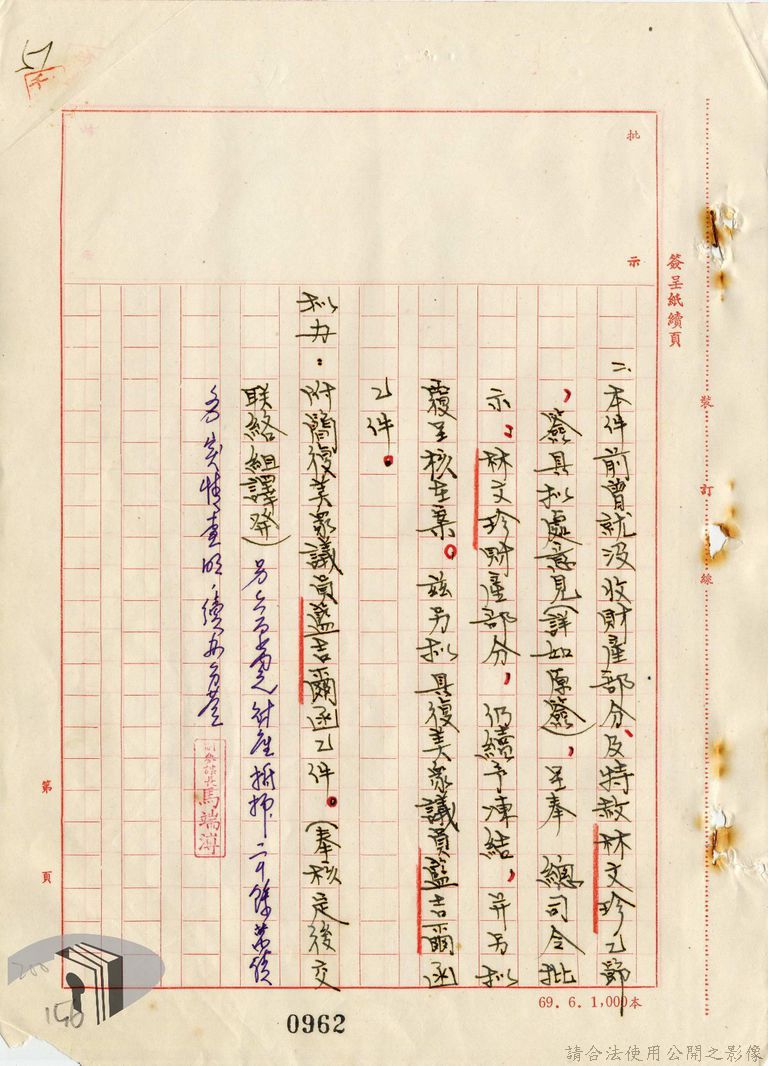 簽呈紙續頁
裝訂線
批示
二、本件前曾就沒收財產部分、及特赦林文珍乙節
，簽具拟處意見（詳如原簽），呈奉 總司令批
示：林文珍財產部分，仍續予凍結，並另拟
覆呈核在案。茲另拟具復美眾議員藍吉爾函
乙件。
拟办：附簡復美眾議員藍吉爾函乙件。（奉核定後交
聯絡組譯發）
財產抵押二千餘萬
查明，續办
副參謀長馬端溥
第 頁
69.6.1,000本
0962
200
156
請合法使用公開之影像